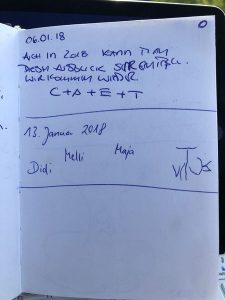 06.01.18
AUCH IN 2018 KANN MAN
DIESEN AUSBLICK
WIR KOMMEN WIEDER.
C + A + E + T
13. Januar 2018
Melli Maja
Didi